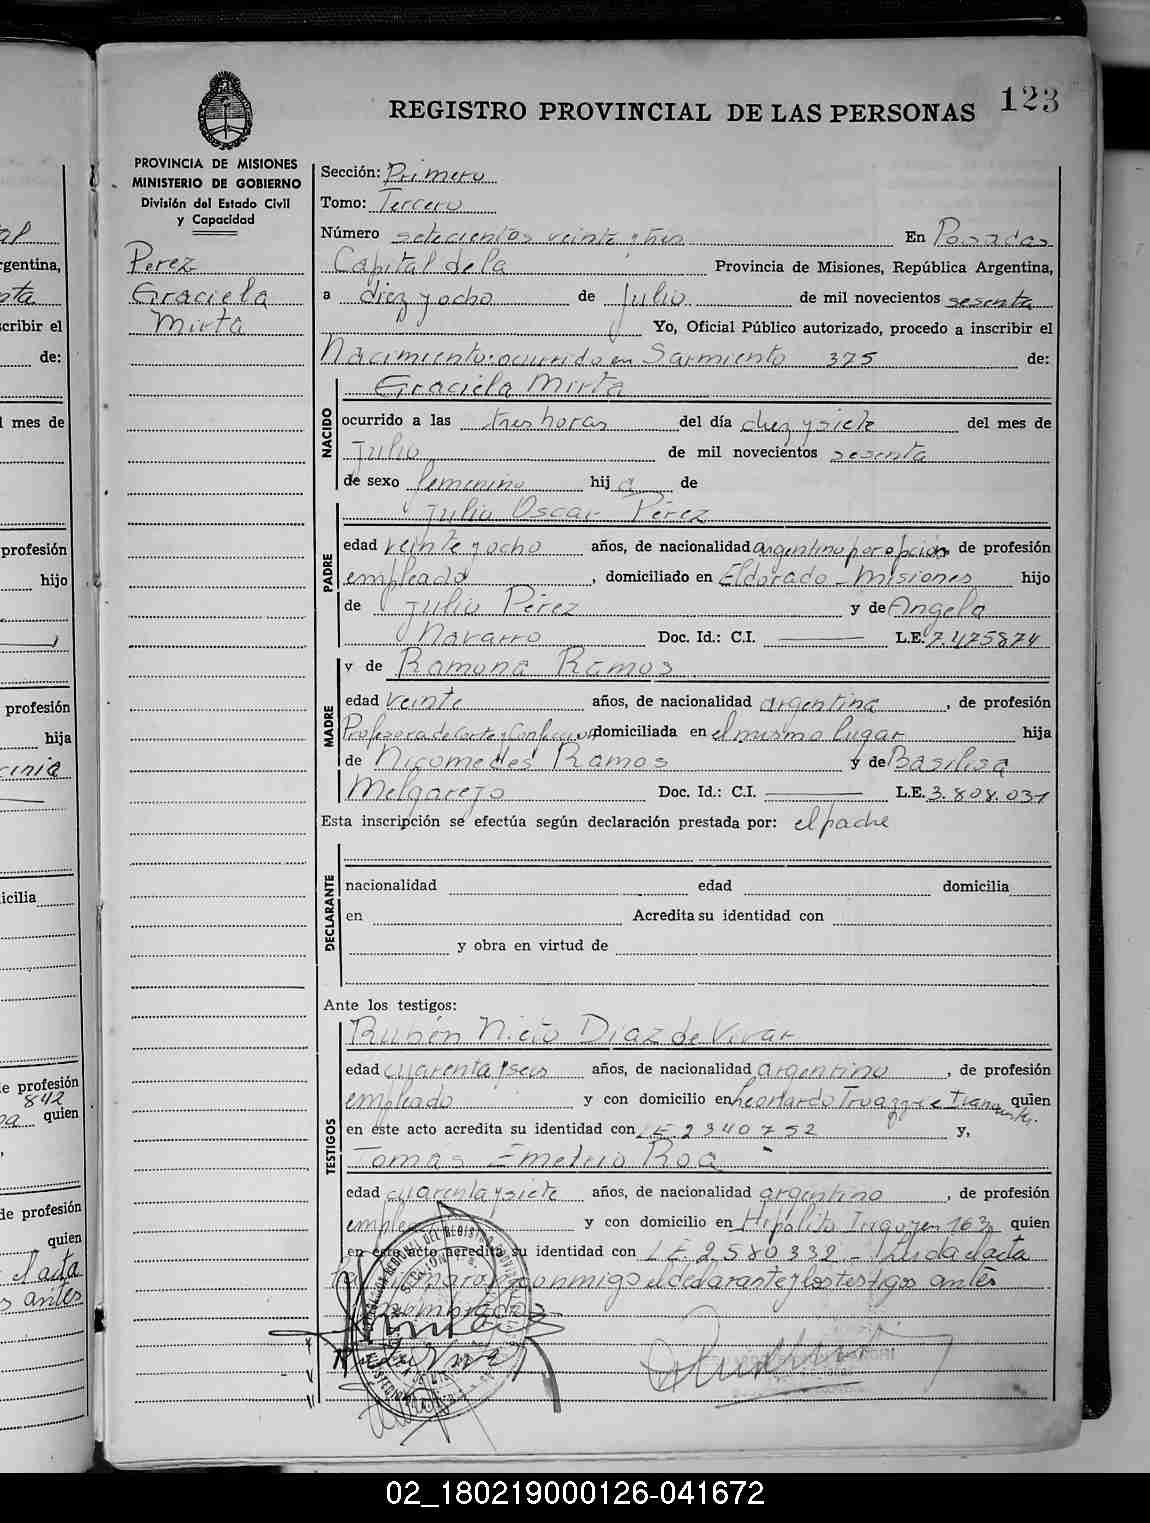 REGISTRO PROVINCIAL DE LAS PERSONAS 123
PROVINCIA DE MISIONES
MINISTERIO DE GOBIERNO
División del Estado Civil
y Capacidad
Perez
Graciela
Mirta
Sección: Primera
Tomo: Tercero
Número setecientos veinte y tres En Posadas
Capital de la Provincia de Misiones, República Argentina,
a diez y ocho de Julio de mil novecientos sesenta
Yo, Oficial Público autorizado, procedo a inscribir el
Nacimiento: ocurrido en Sarmiento 375 de:
NACIDO
Graciela Mirta
ocurrido a las tres horas del día diez y siete del mes de
Julio de mil novecientos sesenta
de sexo femenino hija de
PADRE
Julio Oscar Pérez
edad veinte y ocho años, de nacionalidad argentino por opcion de profesión
empleado, domiciliado en Eldorado - Misiones hijo
de Julio Pérez y de Angela
Navarro Doc. Id.: C.I. L.E. 7.475874
y de Ramona Ramos
MADRE
edad veinte años, de nacionalidad argentina, de profesión
Profesora de Corte y Confeccion domiciliada en el mismo lugar hija
de Nicomedes Ramos y de Basilisa
Melgarejo Doc. Id.: C.I. L.E. 3.808.031
Esta inscripción se efectúa según declaración prestada por: el padre
DECLARANTE
nacionalidad edad domicilia
en Acredita su identidad con
y obra en virtud de
Ante los testigos:
TESTIGOS
Rubén Nieto Diaz de Vivar
edad cuarenta y seis años, de nacionalidad argentino, de profesión
empleado y con domicilio en quien
en este acto acredita su identidad con L E 2340752 y,
Tomas Emeterio Roa
edad cuarenta y siete años, de nacionalidad argentino, de profesión
y con domicilio en Hipolito Irigoyen 163 quien
en este acto acredita su identidad con L E 2580332 - Leida el acta
conmigo el declarante y los testigos antes
02_180219000126-041672